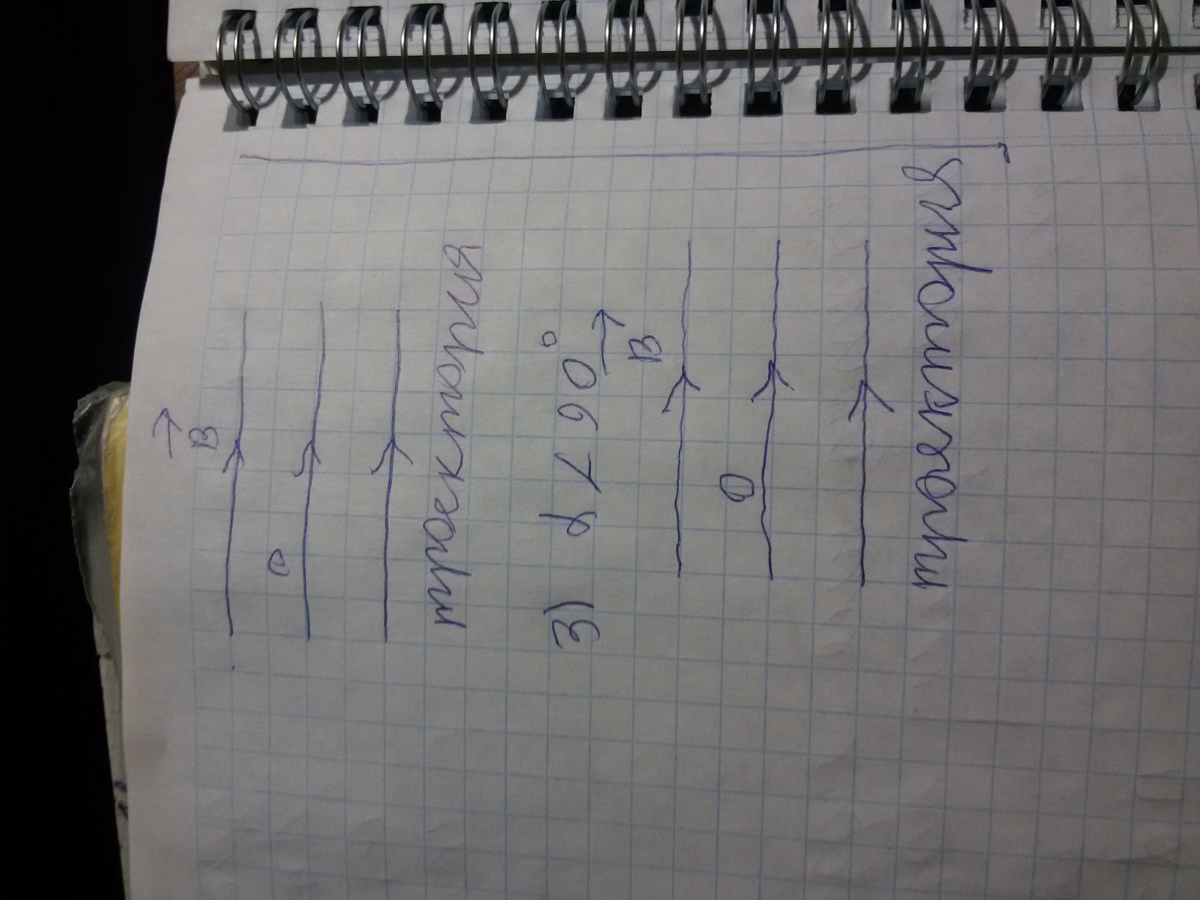 B⃗
траектория
3) α < 90°
B⃗
траектория